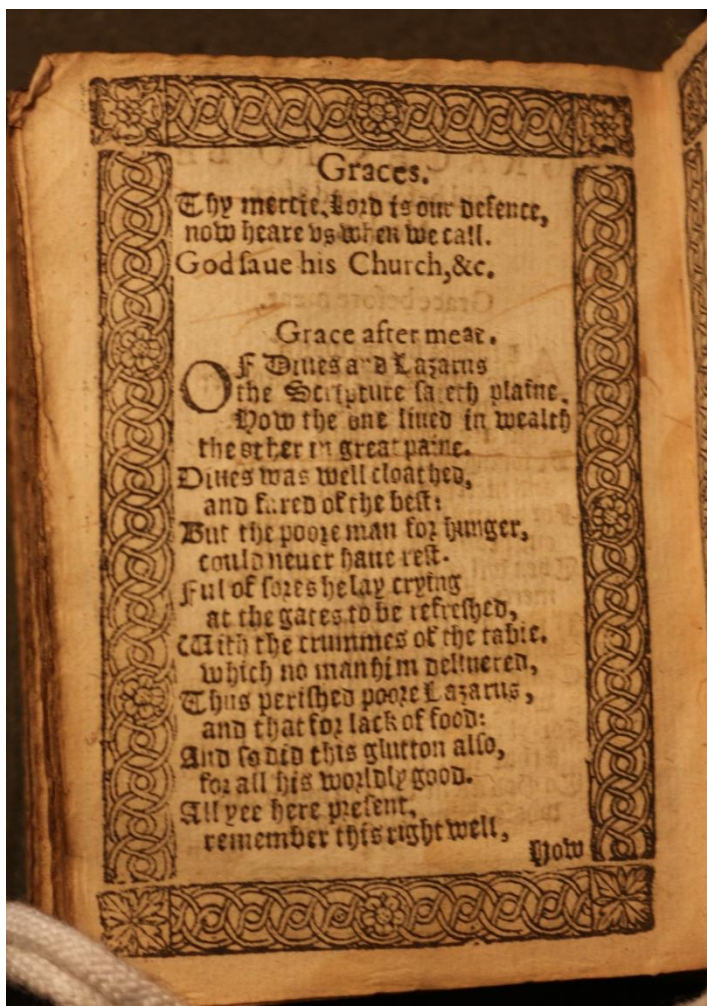 Graces.
Thy mercie, Lord is our defence,
now heare vs when we call.
God saue his Church, &c.
Grace after meat.
OF Diues and Lazarus
the Scripture saieth plaine,
How the one liued in wealth
the other in great paine.
Diues was well cloathed,
and fared of the best:
But the poore man for hunger,
could neuer haue rest.
Ful of sores he lay crying
at the gates to be refreshed,
With the crummes of the table.
which no man him deliuered,
Thus perished poore Lazarus,
and that for lack of food:
And so did this glutton also,
for all his worldly good.
All yee here present,
remember this right well,
How